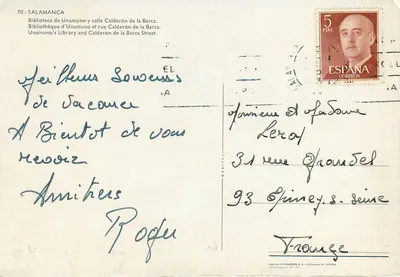 70 - SALAMANCA
Biblioteca de Unamuno y calle Calderón de la Barca.
Bibliothèque d'Unamuno et rue Calderon de la Barca.
Unamuno's Library and Calderon de la Barca Street.
5
PTAS
ESPAÑA
CORREOS
EL
IA
Meilleurs Souvenirs
de vacance
A Bientot de vous
revoir
Amitiers
Roger
Monsieur et Madame
Leroy
31 rue
93 Epinay s. Seine
France